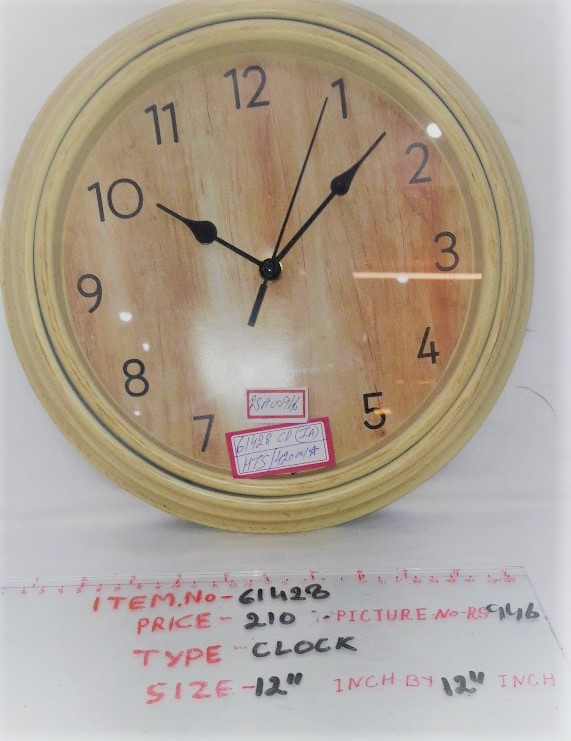 12
1
11
2
10
3
9
4
8
5
7
RSA00946
61428 CD (IA)
HTS/4200/A
ITEM.No-61428
PRICE-210 PICTURE No-RS946
TYPE-CLOCK
SIZE-12" INCH BY 12" INCH